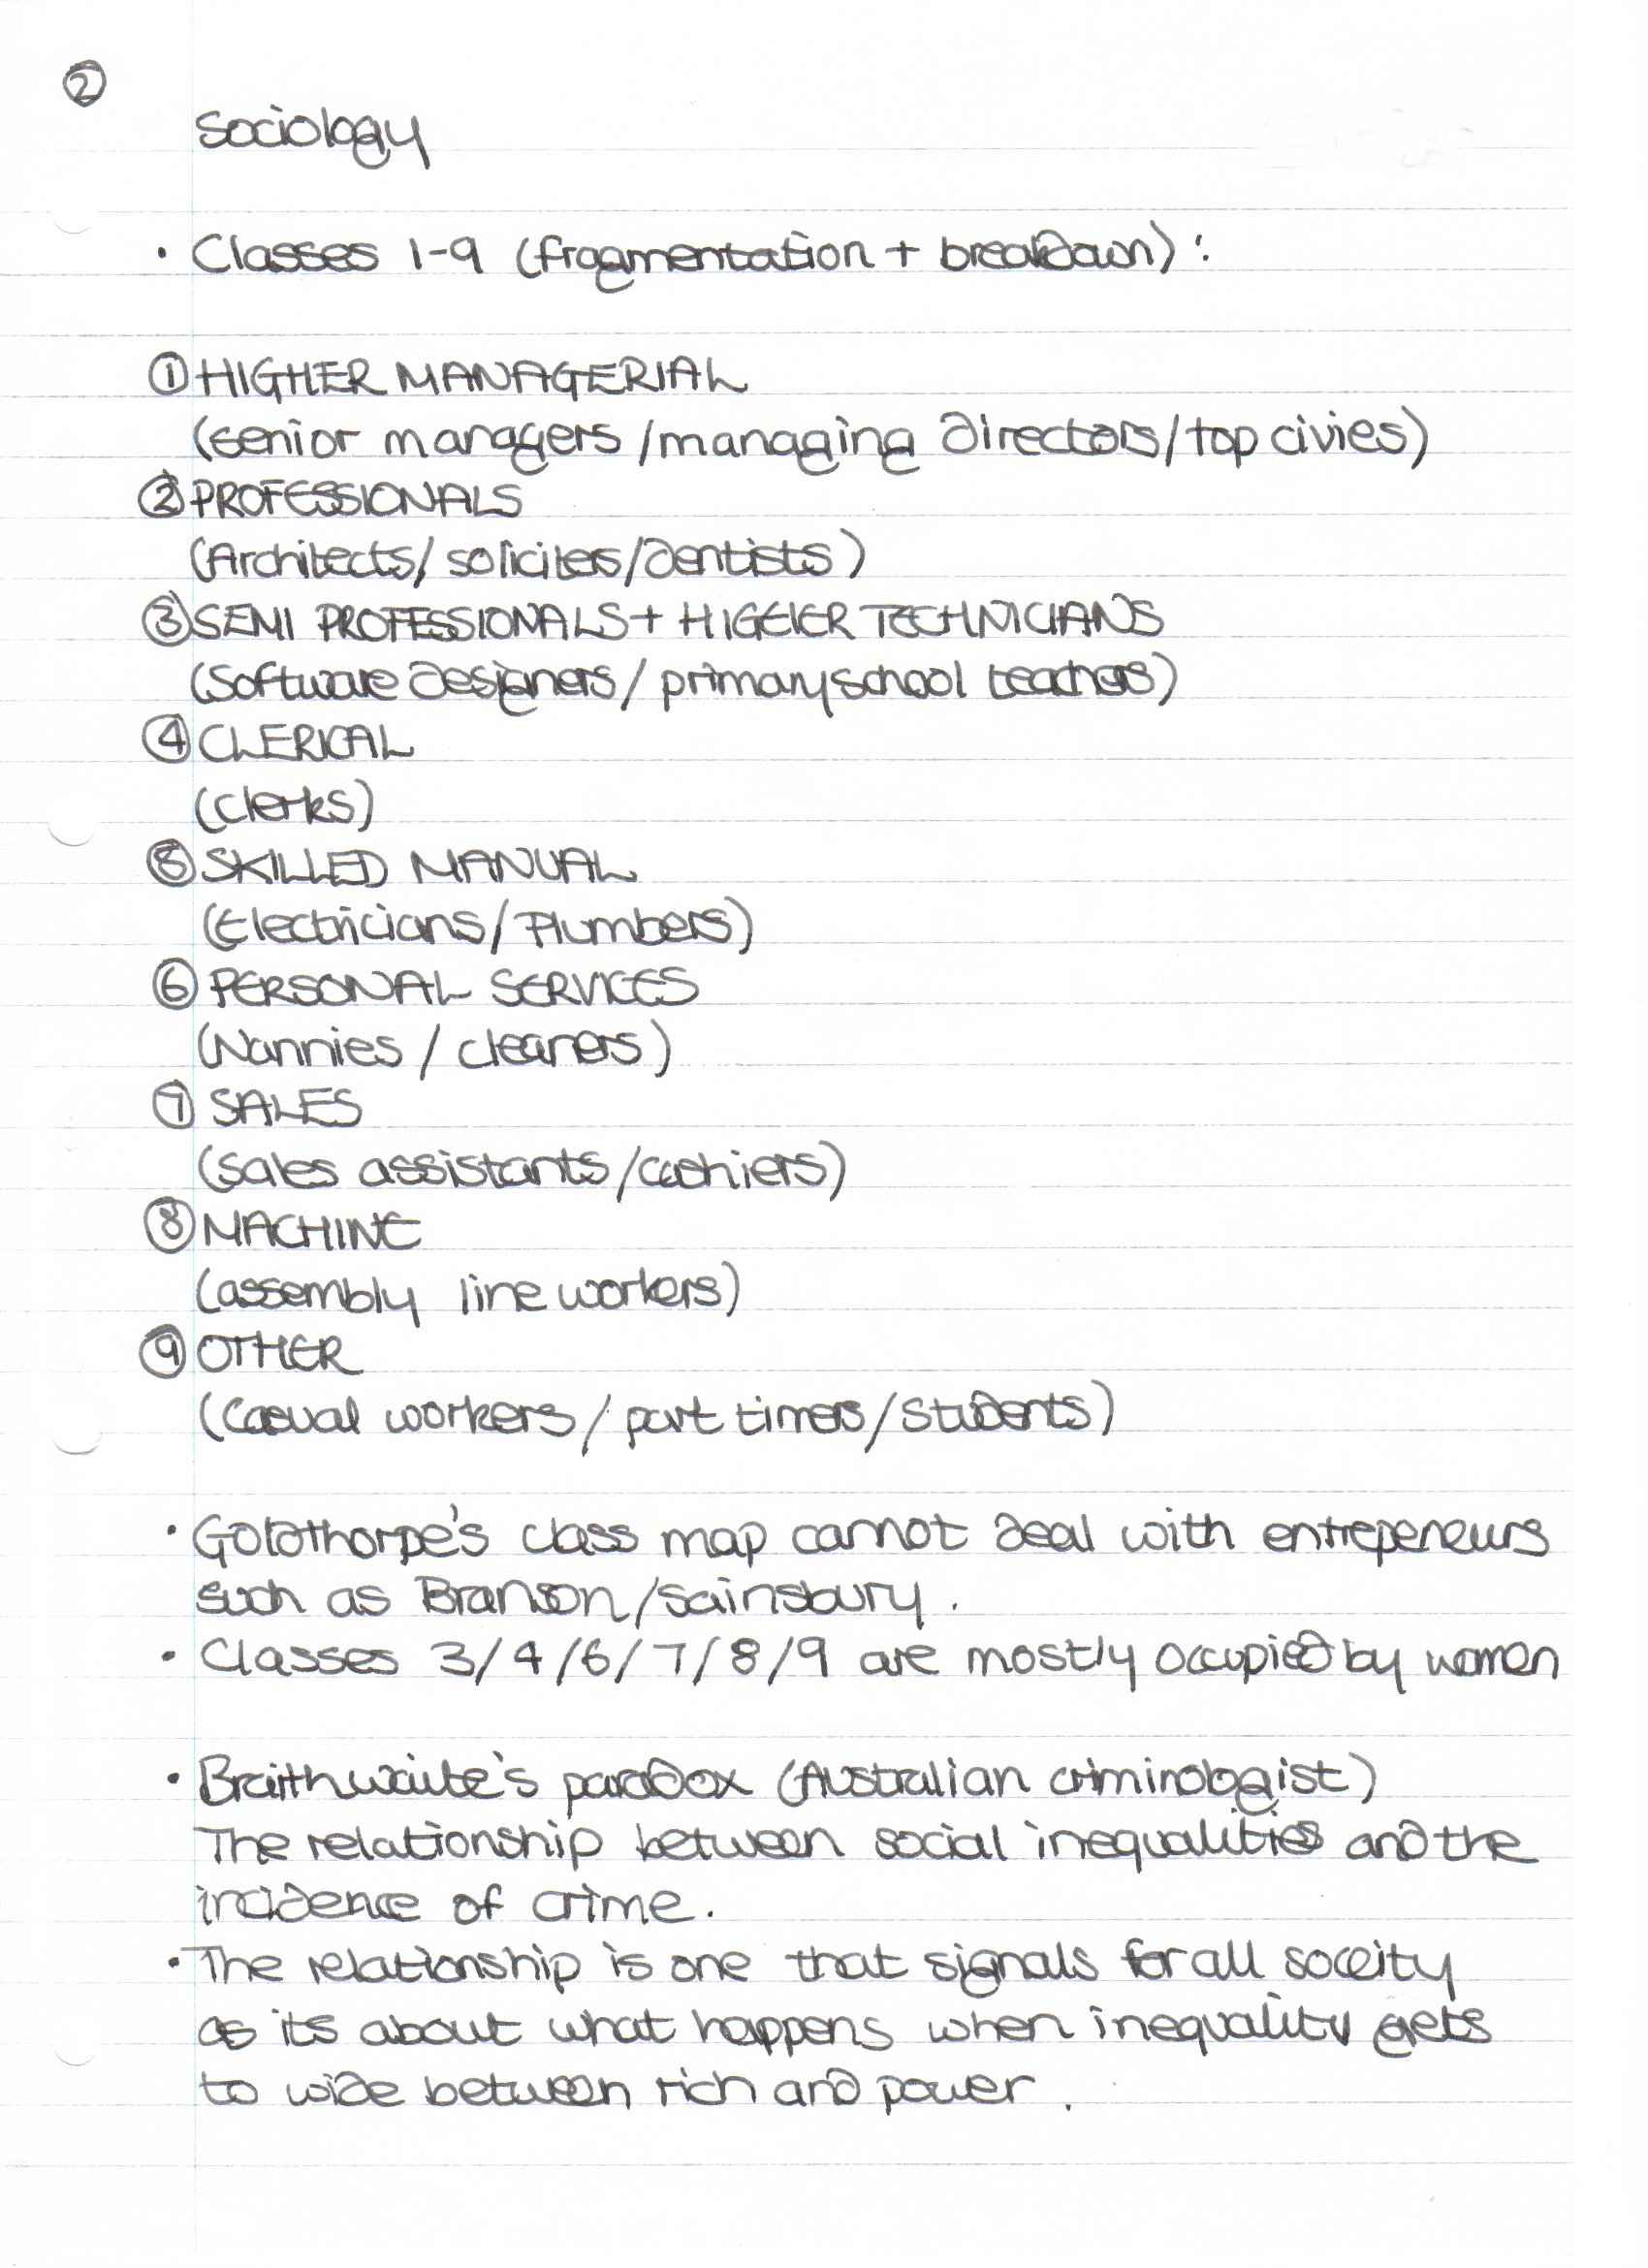 ②
Sociology
· Classes 1-9 (fragmentation + breakdown):
① HIGHER MANAGERIAL
(senior managers/managing directors/top civies)
② PROFESSIONALS
(Architects/soliciters/dentists)
③ SEMI PROFESSIONALS + HIGEIER TECHNICIANS
(Software designers/primary school teachers)
④ CLERICAL
(clerks)
⑤ SKILLED MANUAL
(Electricians/Plumbers)
⑥ PERSONAL SERVICES
(Nannies/cleaners)
⑦ SALES
(sales assistants/cashiers)
⑧ MACHINE
(assembly line workers)
⑨ OTHER
(casual workers/part timers/students)
· Goldthorpe's class map cannot deal with entrepeneurs
such as Branson/Sainsbury.
· Classes 3/4/6/7/8/9 are mostly occupied by women
· Braithwaite's paradox (Australian criminologist)
The relationship between social inequalities and the
incidence of crime.
· The relationship is one that signals for all soceity
as its about what happens when inequality gets
to wide between rich and power.